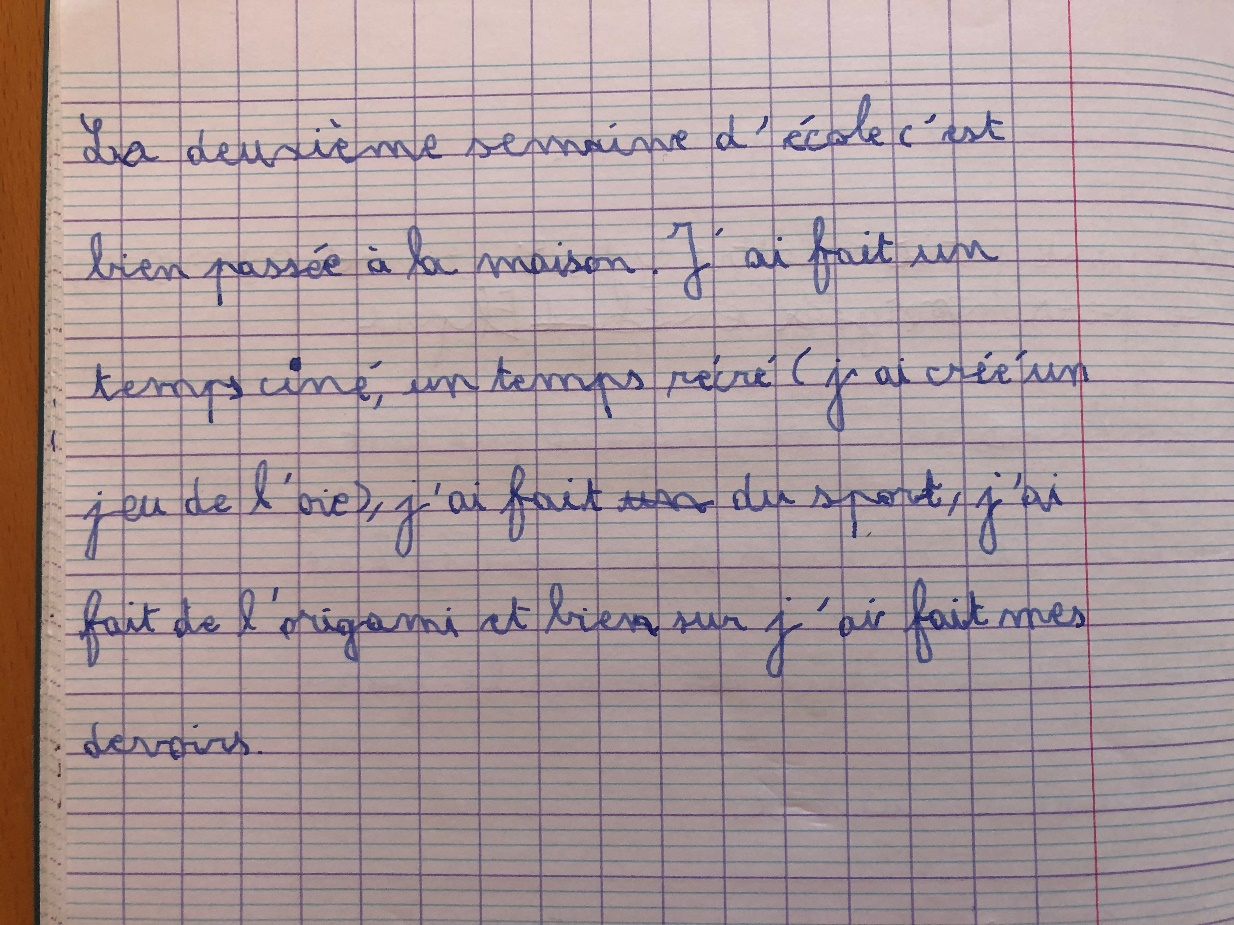 La deuxième semaine d'école c'est
bien passée à la maison. J'ai fait un
temps ciné, un temps récré (j'ai créé un
jeu de l'oie), j'ai fait du sport, j'ai
fait de l'origami et bien sur j'ai fait mes
devoirs.